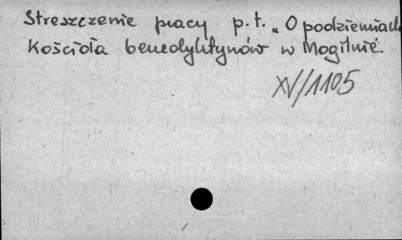 Streszczenie pracy p.t. „O podziemiach
Kościoła benedyktynów w Mogilnie.
XV/1105